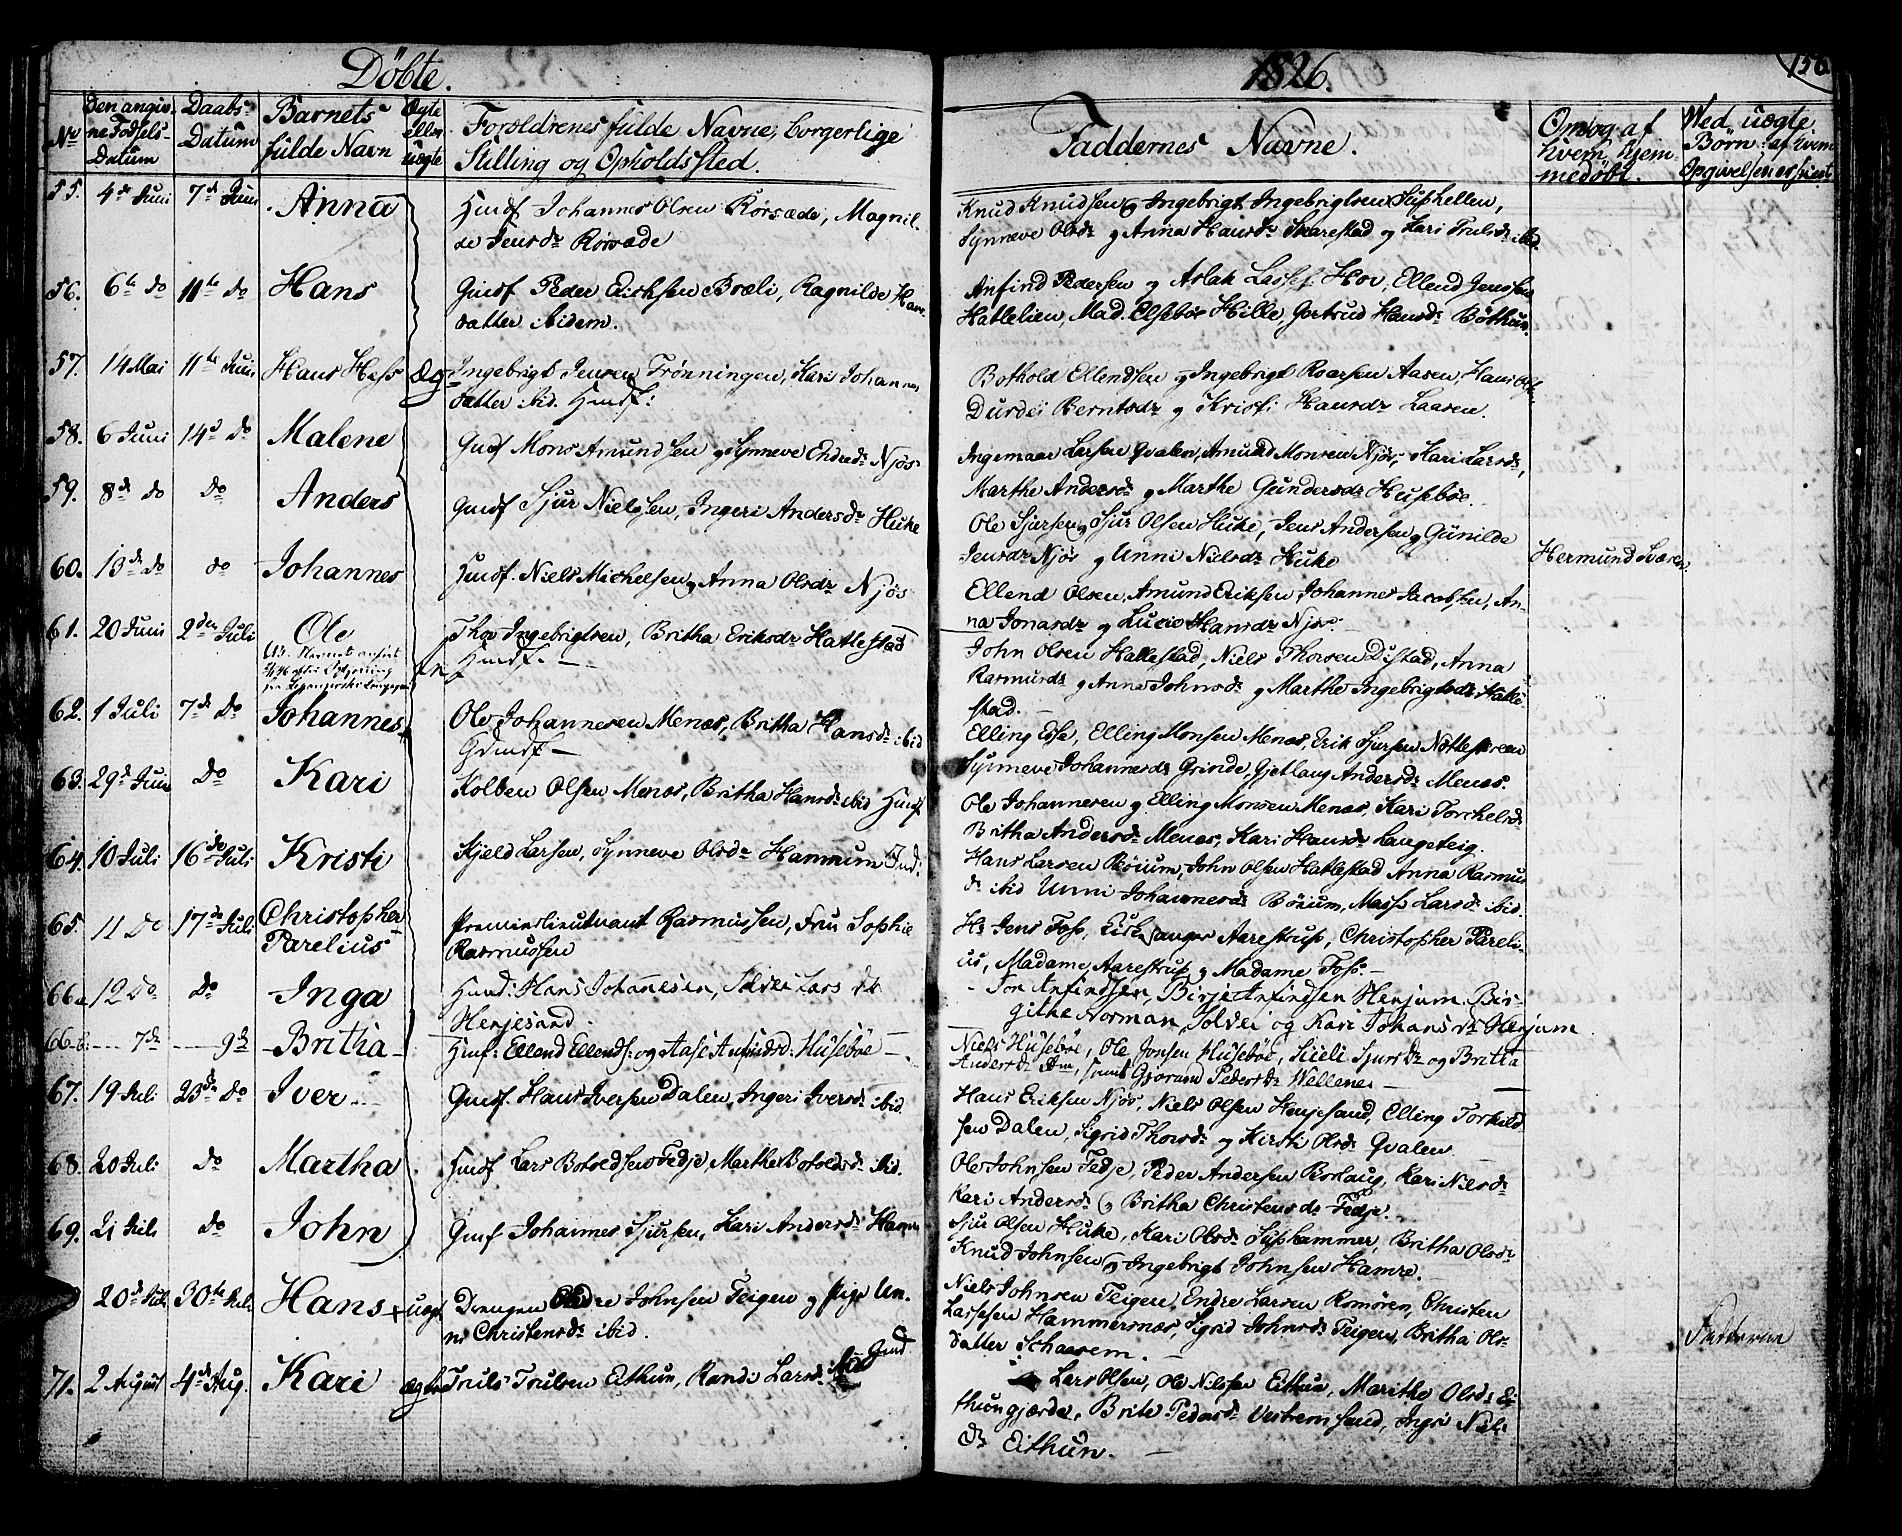 Döbte.
1826.
156
No
Den angivne Födsels-Datum
Daabs-Datum
Barnets fulde Navn
Ægte eller uægte
Foreldrenes fulde Navne, borgerlige Stilling og Opholdssted.
Faddernes Navne.
Om og af hvem hjemmedöbt.
Ved uægte Börn, af hvem Opgivelsen er skeet
55. 4de Juni 7de Juni Anna
Huusf Johannes Olsen Rörsæde, Magnil-
de Jensdr Rörsæde
Knud Knudsen og Ingebrigt Ingebrigtsen Slipshellen,
Synneve Olsdr og Anna Hansdr Skarestad og Kari Trulsdr ibid
56. 6te do 11te do Hans
Gmdf Peder Erichsen Bræli, Ragnilde Hans-
datter ibidem.
Anfind Pedersen og Aslak Lasses. Hov, Ellend Jenssen
Hatlelien, Mad. Elsebe Hille, Gertrud Hansdr Böthun.
57. 14 Mai 11te Juni Hans Hess Æg-
Ingebrigt Jensen Trönningen, Kari Johannes
datter ibid. Huusf:
Bothold Ellendsen og Ingebrigt Roarsen Aasen, Hans Ols-
Durdei Berntsdr og Kristi Hansdr Laasen.
58. 6 Juni 14d do Malene
Gmdf Mons Amundsen og Synneve Endredr Njös
Ingemaar Larsen Qvalen, Amund Monsen Njös, Kari Larsdr,
Marthe Andersdr og Marthe Gundersdr Huseböe.
59. 8de do do Anders
Gmdf Sjur Nielssen, Ingeri Andersdr Huke
Ole Sjursen og Sjur Olsen Huke, Jens Andersen og Gunilde
Jensdr Njös og Unni Nielsdr Huke
60. 13de do do Johannes
Huusf. Niels Michelsen og Anna Olsdr Njös
Ellend Olsen, Amund Eriksen Johannes Jacobsen, An-
na Jonasdr og Lucie Hansdr Njös.
Hermund Sværen
61. 20 Juni 2den Juli Ole
Thor Ingebrigtsen, Britha Eriksdr Hatlestad
Huusf. —
John Olsen Hatlestad, Niels Thorsen Distad, Anna
Rasmusdr og Anna Johnsdr og Marthe Ingebrigtsdr Hatle-
stad. —
62. 1 Juli 7de Do Johannes
Ole Johannesen Menæs, Britha Hansdr ibid
Gdmdf —
Elling Esse, Elling Monsen Menæs, Erik Sjursen Nötleporen
Synneve Johannesdr Grinde, Gjetlaug Andersdr Menæs.
63. 29d Juni Do Kari
Kolben Olsen Menæs, Britha Hansdr ibid Huusf
Ole Johannesen og Elling Monsen Menæs, Kari Torchelsdr
Britha Andersdr Menæs, Kari Hansdr Langeteig.
64. 10 Juli 16de Juli Kristi
Kjeld Larsen, Synneve Olsdr Hammum Ind:
Hans Larsen Böium, John Olsen Hatlestad Anna Rasmus
dr ibid Unni Johannesdr Böium, Mass Larsdr ibid.
65. 11 Do 17de Juli Christopher
Parelius
Premierlieutnant Rasmussen, Fru Sophie
Rasmussen
Hr Jens Foss, Kirkesanger Aarestrup, Christopher Pareli-
us, Madame Aarestrup og Madame Foss. —
66a 12 Do Do Inga
Huusf: Hans Johannesen, Solvei Lars dr
Henjesand.
Tor Anfindsen, Birje Anfindsen Henjum. Bir-
githe Norman, Solvei og Kari Johans dr Henjum
66-b: — 7de — 9de Britha
Huusf: Ellend Ellends: og Aase Anfindsd: Huseböe —
Niels Huseböe, Ole Jonsen Huseböe, Siceli Sjursdr og Britha
Andersdr ibm, samt Gjorun Pedersdr Wellene —
67. 19 Juli 23de do Iver
Gmdf. Hans Iversen Dalen, Ingeri Iversdr ibid.
Hans Eriksen Njös, Niels Olsen Henjesand, Elling Torkild
sen Dalen, Sigrid Thorsdr og Kirsti Olsdr Qvalen
68. 20 Juli Do Martha
Huusf Lars Botoldsen Fedje Marthe Botoldsdr ibid.
Ole Johnsen Fedje, Peder Andersen Borlaug, Kari Nielsdr
Kari Andersdr og Britha Christensdr Fedje.
69. 21 Juli do John
Gmdf Johannes Sjursen, Kari Andersdr Hamre
Sjur Olsen Huke, Kari Olsdr Slipshammer, Britha Olsdr
Knud Johnsen og Ingebrigt Johnsen Hamre.
20d Juli 30te Juli Hans uægt
Drengen Endre Johnsen Teigen og pige Un-
ni Christensdr ibid.
Niels Johnsen Teigen, Endre Larsen Romören, Christen
Lassesen Hammersnæs, Sigrid Johnsdr Teigen, Britha Ols-
datter Skaasem. —
Fadderne
71. 2 August 4de Aug. Kari Ægte
Truls Trulsen Eithun, Randi Larsdr ibid Gmd
Lars Olsen, Ole Nilssen Eithun, Marithe Olsdr Ei-
thungjærde, Brite Pedersdr Vestrem sand, Ingri Niels
dr Eithun. —